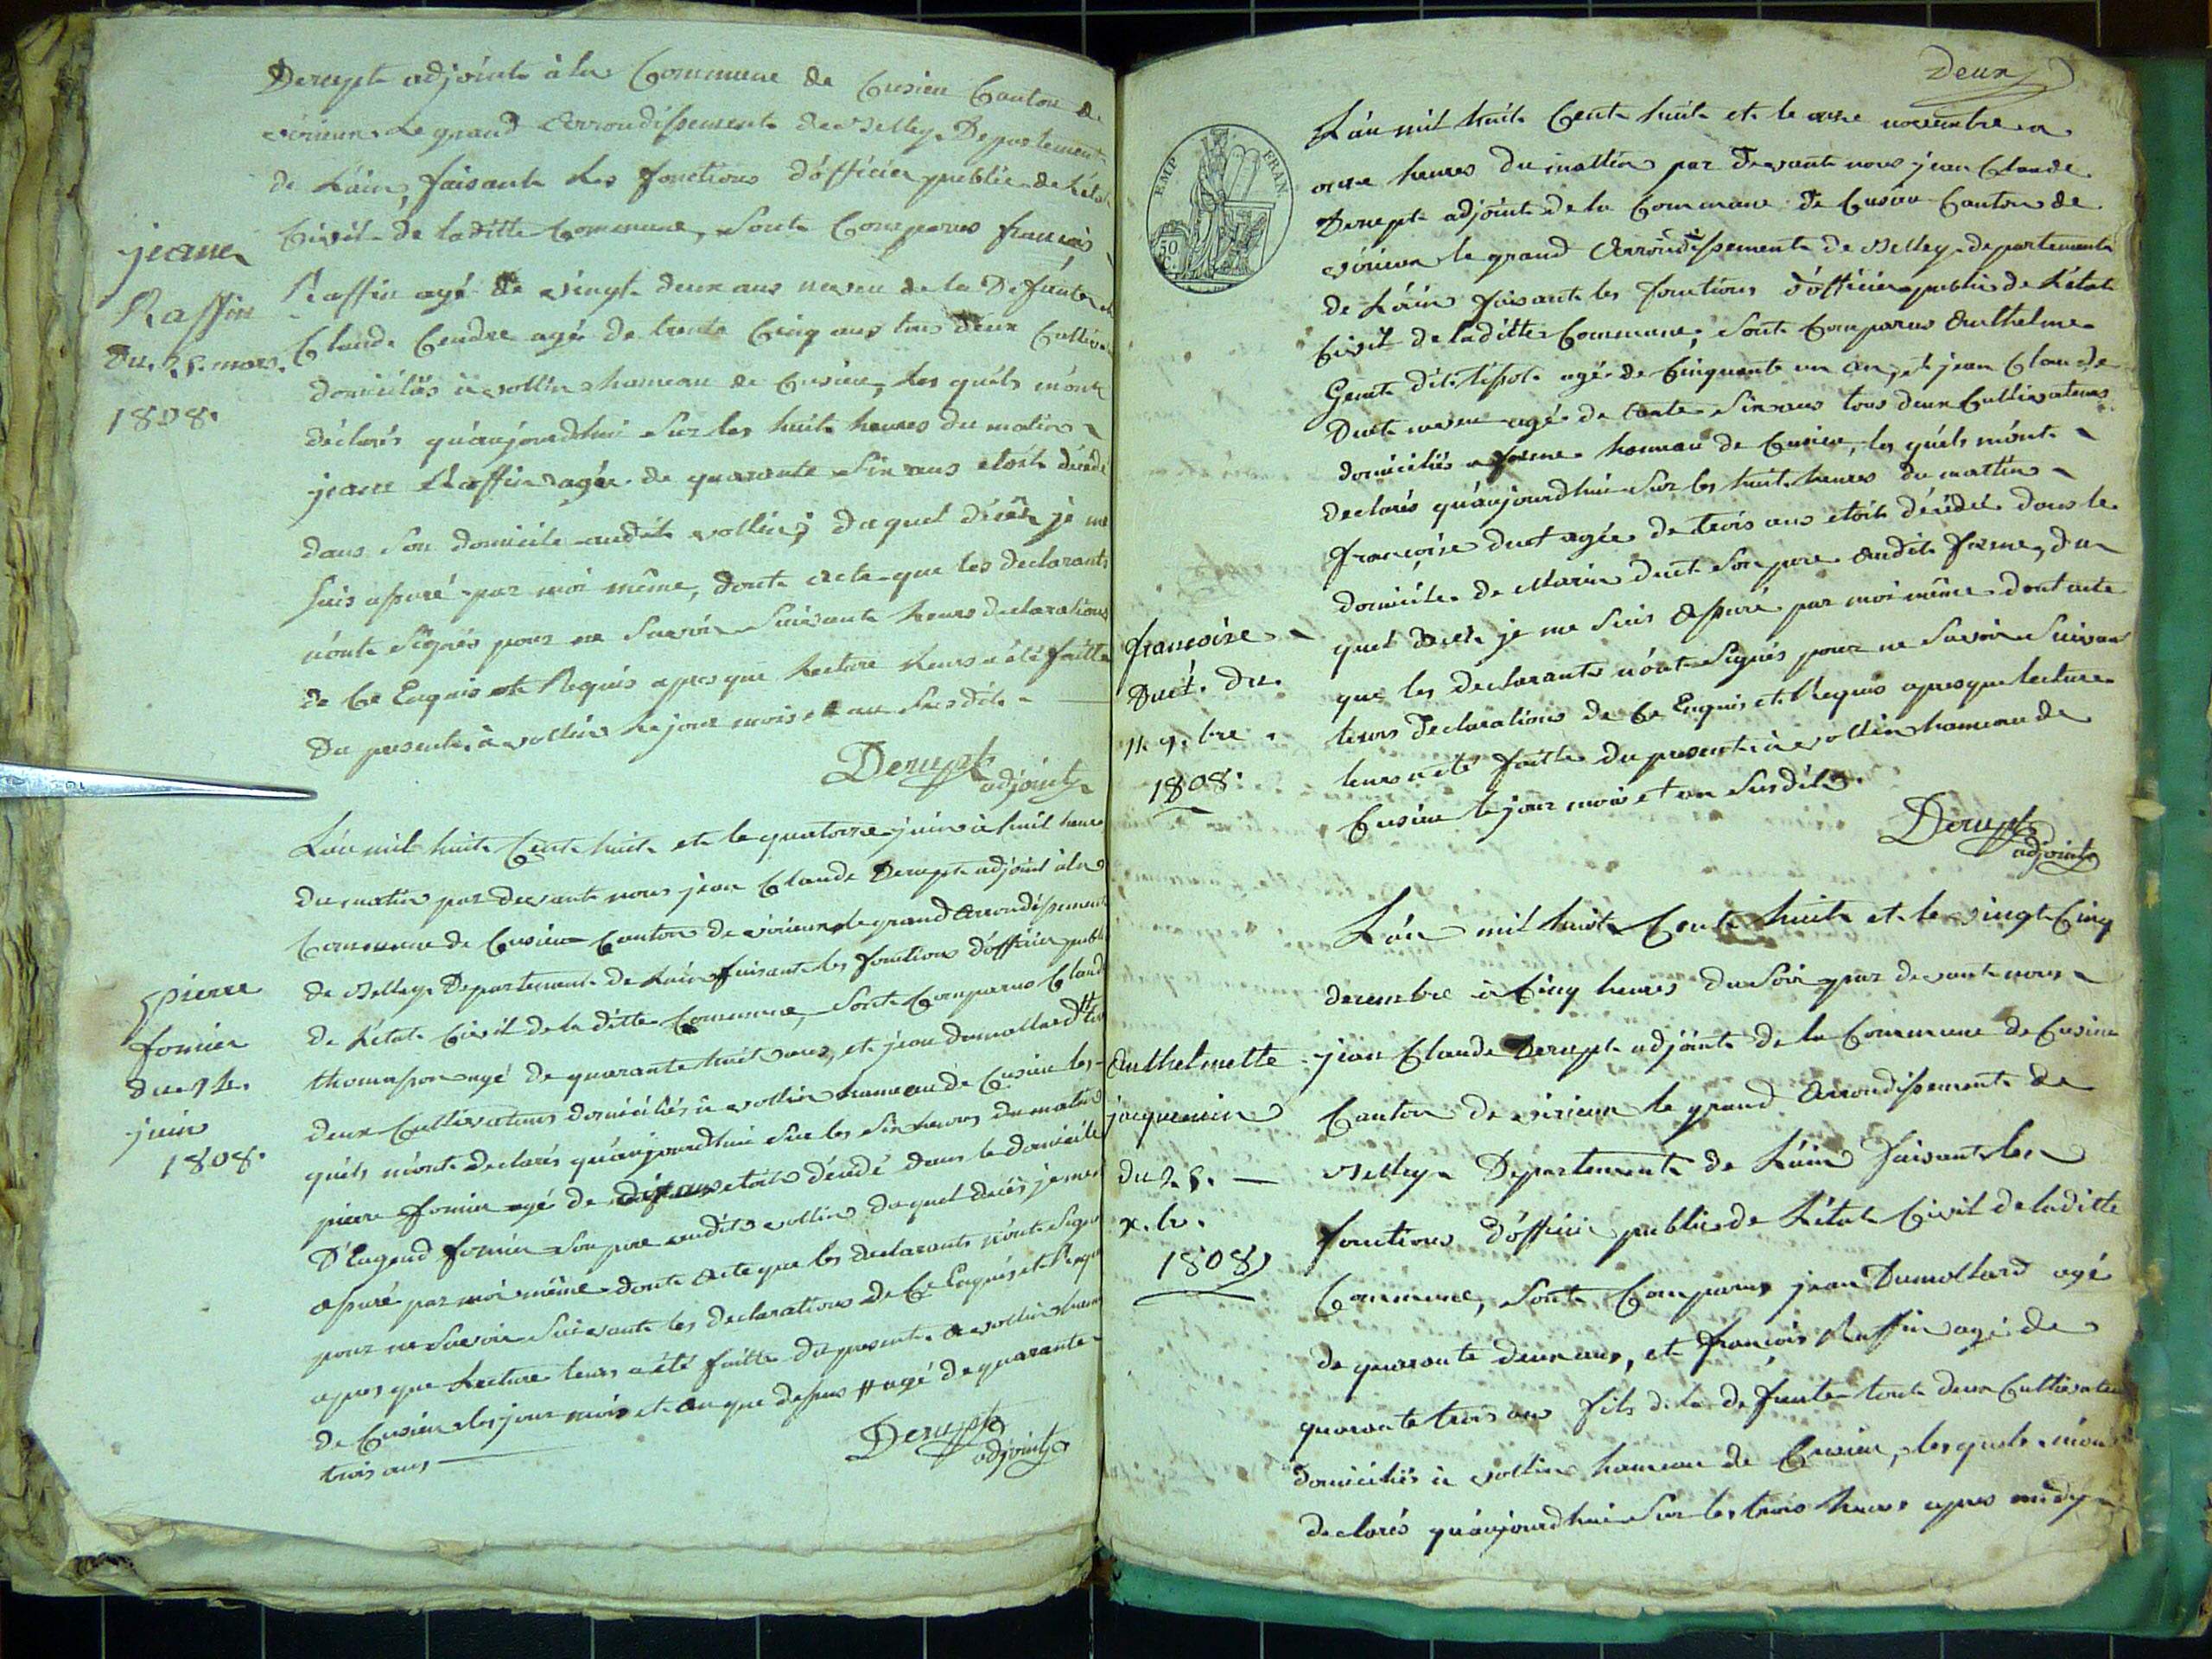 Derupt adjoint à la Commune de Cusieu Canton de
virieux Le grand Arrondissement de Belley Departement
de L'ain, faisant Les fonctions d'officier public de L'état
Civil de laditte Commune, Sont Comparus francois
Raffin agé de vingt deux ans neveu de la Defunte et
Claude Cendre agé de trente Cinq ans tous deux Cultiva
domiciliés à vollin hameau de Cusieu, Les quels m'ont
déclarés qu'aujourdhui Sur les huit heures du matin
jeane Raffin agée de quarante Six ans etoit décédé
dans Son domicile audit vollin; duquel décès je me
Suis assuré par moi même, dont acte que les declarants
n'ont Signés pour ne Savoir Suivant Leurs declarations
de Ce Enquis et Requis apres que Lecture Leurs a été faitte
Du present, à vollin Le jour mois et an Susdit.
Derupt
adjoint
jeane
Raffin
du 25. mars.
1808.
L'an mil huit Cent huit et le quatorze juin à huit heures
du matin par devant nous jean Claude Derupt adjoint à la
Commune de Cusieu Canton de virieux le grand Arrondissement
de Belley Departement de L'ain faisant les fonctions d'officier publ
de L'état Civil de la ditte Commune, Sont Comparus Claude
thomasson agé de quarante huit ans, et jean dumollard # tous
deux Cultivateurs domiciliés à vollin hameau de Cusieu les-
quels m'ont declarés qu'aujourdhui Sur les Six heures du matin
pierre fornier agé de dix ans etoit décédé dans le domicile
D'Eugend fornier Son pere audit vollin duquel décès je me
assuré par moi même dont Acte que les declarants n'ont Signé
pour ne Savoir Suivant les declarations de Ce Enquis et Requ
apres que Lecture leurs a été faitte du present. A vollin ham
de Cusieu les jour mois et An que dessus # agé de quarante
trois ans
Derupt
adjoint
pierre
fornier
du 14.
juin
1808.
Deux
EMP FRAN
50 C.
L'an mil huit Cent huit et le onze novembre a
onze heures du mattin par devant nous jean Claude
Derupt adjoint de la Commune de Cusieu Canton de
virieux le grand Arrondissement de Belley departement
de L'ain faisant les fonctions d'officier public de L'état
Civil de laditte Commune, Sont Comparus Anthelme
Genet dit tissot agé de Cinquante un an, et jean Claude
Duet neveu agé de trente Six ans tous deux Cultivateurs
domiciliés a hameau de Cusieu, les quels m'ont
declarés qu'aujourdhui Sur les huit heures du mattin
françoise duet agée de trois ans etoit décédée dans le
domicile de Marin duet Son pere Audit du
quel decès je me Suis Assuré par moi même dont acte
que les declarants n'ont Signés pour ne Savoir Suivant
leurs declarations de Ce Enquis et Requis apres que lecture
leurs a été faitte du present à vollin hameau de
Cusieu le jour mois et an Susdit.
Derupt
adjoint
francoise
Duet. du.
11. 9.bre
1808.
L'an mil huit Cent huit et le vingt Cinq
decembre à Cinq heures du Soir par devant nous
jean Claude Derupt adjoint de la Commune de Cusieu
Canton de virieux le grand Arrondissement de
Belley Departement de L'ain faisant les
fonctions d'officier public de L'état Civil de laditte
Commune, Sont Comparus jean Dumollard agé
de quarante deux ans, et françois Raffin agé de
quarante trois ans fils de la defunte tout deux Cultivateur
domiciliés à vollin hameau de Cusieu, les quels m'ont
declarés qu'aujourdhui Sur les trois heures apres midy
Anthelmette
jacquemin
du 25.
x.br.
1808